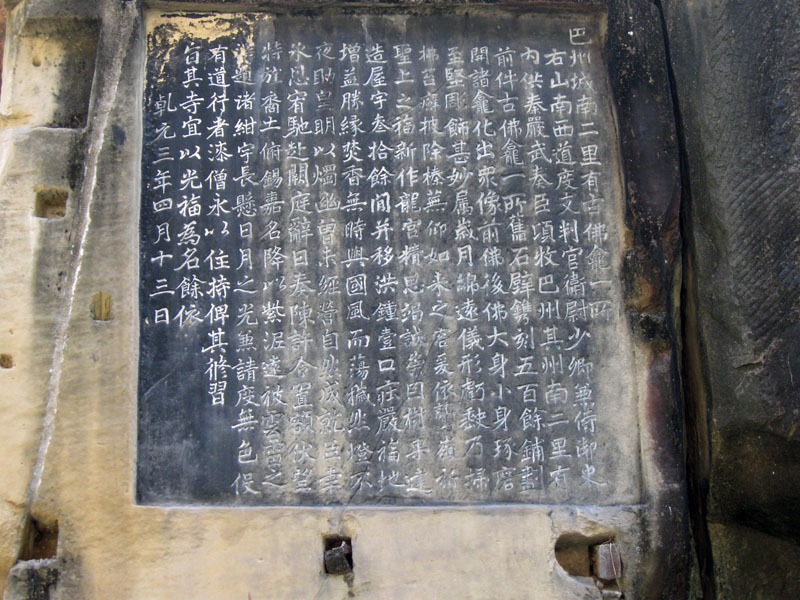 巴州城南二里有古佛龕一所
右山南西道度支判官衛尉少卿兼侍御史
內供奉嚴武奏臣頃牧巴州其州南二里有
前件古佛龕一所舊石壁鐫刻五百餘鋪劃
開諸龕化出眾像前佛後佛大身小身琢磨
至堅彫飾甚妙屬歲月綿遠儀形虧缺乃掃
拂苔癬披除榛蕪仰如來之容爰依鷲嶺祈
聖上之福新作龍宮精思竭誠崇因樹果遂
造屋宇叁拾餘間并移洪鍾壹口莊嚴福地
增益勝緣焚香無時與國風而蕩穢燃燈不
夜助皇明以燭幽曾未經營自然成就臣
永思宥馳赴闕庭辭日奏陳許令置額伏望
特於裔土俯錫嘉名降以紫泥遠被雲雷之
題諸紺宇長懸日月之光兼請度無色役
有道行者漆僧永以住持俾其修習
旨其寺宜以光福為名餘依
乹元三年四月十三日